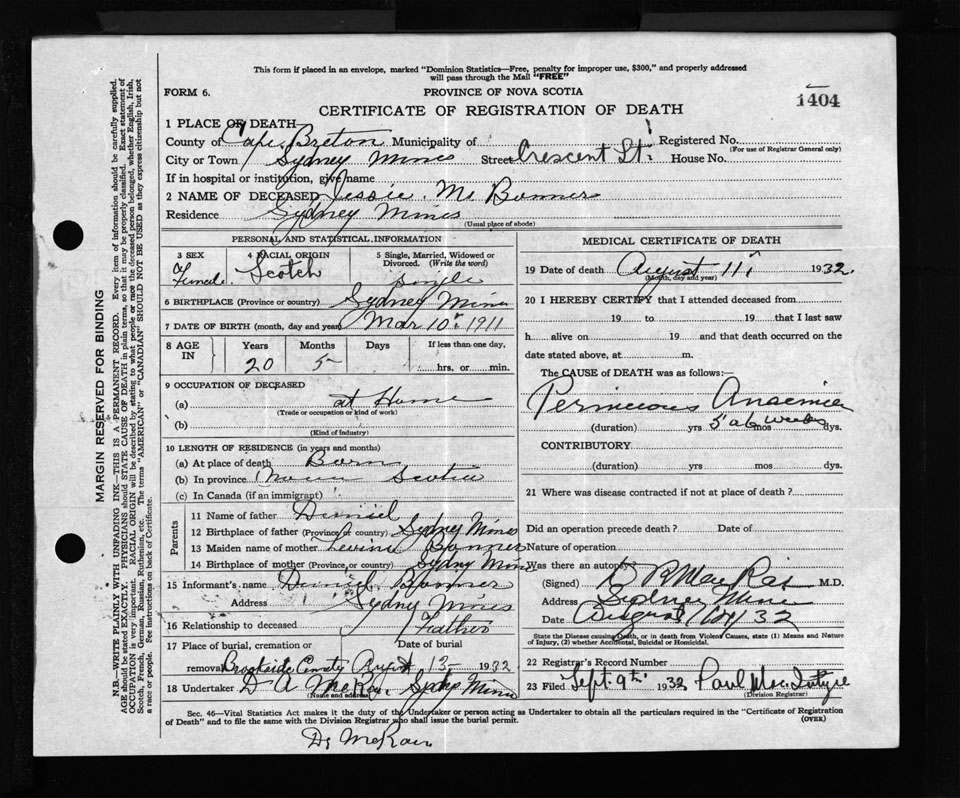 This form if placed in an envelope, marked "Dominion Statistics—Free, penalty for improper use, $300," and properly addressed
will pass through the Mail "FREE"
FORM 6.
PROVINCE OF NOVA SCOTIA
1404
CERTIFICATE OF REGISTRATION OF DEATH
1 PLACE OF DEATH
County of Cape Breton Municipality of Registered No.
(For use of Registrar General only)
City or Town Sydney Mines Street Crescent St. House No.
If in hospital or institution, give name
2 NAME OF DECEASED Jessie Mc Bonner
Residence Sydney Mines
(Usual place of abode)
PERSONAL AND STATISTICAL INFORMATION
3 SEX Female
4 RACIAL ORIGIN Scotch
5 Single, Married, Widowed or Divorced. (Write the word) Single
6 BIRTHPLACE (Province or country) Sydney Mines
7 DATE OF BIRTH (month, day and year) Mar 10th 1911
8 AGE IN Years Months Days If less than one day,
20 5 hrs. or min.
9 OCCUPATION OF DECEASED
(a) at Home
(Trade or occupation or kind of work)
(b)
(Kind of industry)
10 LENGTH OF RESIDENCE (in years and months)
(a) At place of death Born
(b) In province Nova Scotia
(c) In Canada (if an immigrant)
Parents
11 Name of father Daniel
12 Birthplace of father (Province or country) Sydney Mines
13 Maiden name of mother Bonner
14 Birthplace of mother (Province or country) Sydney Mines
15 Informant's name Daniel Bonner
Address Sydney Mines
16 Relationship to deceased Father
17 Place of burial, cremation or Date of burial
removal Brookside August 13 1932
18 Undertaker D A Sydney Mines
(Name and address)
MEDICAL CERTIFICATE OF DEATH
19 Date of death August 11, 1932
(Month, day and year)
20 I HEREBY CERTIFY that I attended deceased from
19 to 19 that I last saw
h alive on 19 and that death occurred on the
date stated above, at m.
The CAUSE of DEATH was as follows:—
Pernicious Anaemia
(duration) yrs 5 a 6 mos weeks dys.
CONTRIBUTORY
(duration) yrs mos dys.
21 Where was disease contracted if not at place of death?
Did an operation precede death? Date of
Nature of operation
Was there an autopsy
(Signed) MacRae M.D.
Address Sydney Mines
Date 32
State the Disease causing Death, or in death from Violent Causes, state (1) Means and Nature
of Injury, (2) whether Accidental, Suicidal or Homicidal.
22 Registrar's Record Number
23 Filed Sept. 9th 1932 Paul MacIntyre
(Division Registrar)
Sec. 46—Vital Statistics Act makes it the duty of the Undertaker or person acting as Undertaker to obtain all the particulars required in the "Certificate of Registration
of Death" and to file the same with the Division Registrar who shall issue the burial permit.
(OVER)
MARGIN RESERVED FOR BINDING
N.B.—WRITE PLAINLY WITH UNFADING INK—THIS IS A PERMANENT RECORD. Every item of information should be carefully supplied.
AGE should be stated EXACTLY. PHYSICIANS should STATE CAUSE OF DEATH in plain terms, so that it may be properly classified. Exact statement of
OCCUPATION is very important. RACIAL ORIGIN will be described by stating to what people or race the deceased person belonged, whether English, Irish,
Scotch, French, German, Russian, Ruthenian, etc. The terms "AMERICAN" or "CANADIAN" SHOULD NOT BE USED as they express citizenship but not
a race or people. See instructions on back of Certificate.